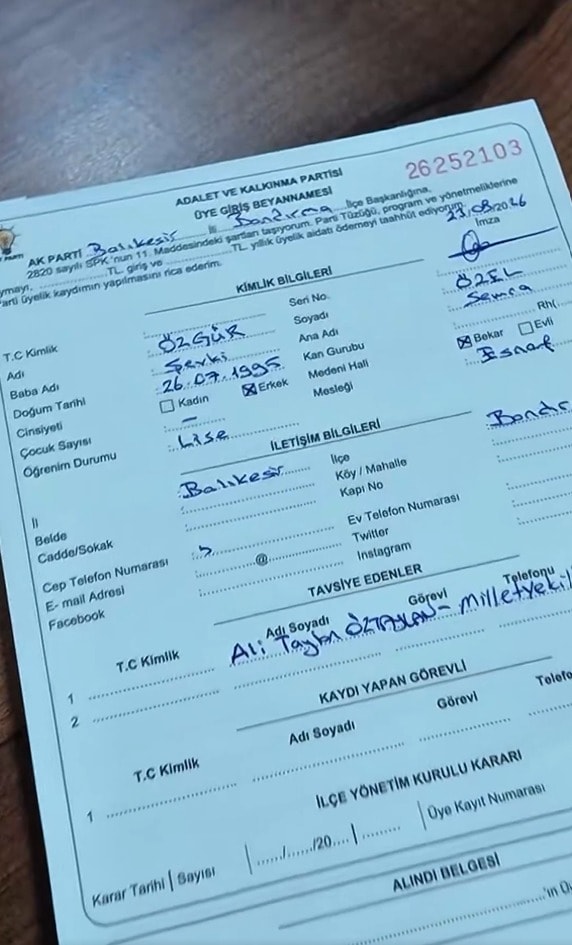 26252103
ADALET VE KALKINMA PARTİSİ
ÜYE GİRİŞ BEYANNAMESİ
AK PARTİ Balıkesir İli Bandırma İlçe Başkanlığına,
2820 sayılı SPK'nun 11. Maddesindeki şartları taşıyorum. Parti Tüzüğü, program ve yönetmeliklerine
uymayı, TL. giriş ve TL. yıllık üyelik aidatı ödemeyi taahhüt ediyorum.
Parti üyelik kaydımın yapılmasını rica ederim.
23/08/2026
İmza
KİMLİK BİLGİLERİ
T.C Kimlik Seri No
Adı ÖZGÜR Soyadı ÖZEL
Baba Adı Şevki Ana Adı Semra
Doğum Tarihi 26.07.1995 Kan Gurubu Rh(
Cinsiyeti Kadın Erkek Medeni Hali Bekar Evli
Çocuk Sayısı – Mesleği Esnaf
Öğrenim Durumu Lise
İLETİŞİM BİLGİLERİ
İl Balıkesir İlçe Bandır
Belde Köy / Mahalle
Cadde/Sokak Kapı No
Cep Telefon Numarası Ev Telefon Numarası
E- mail Adresi @ Twitter
Facebook Instagram
TAVSİYE EDENLER
T.C Kimlik Adı Soyadı Görevi Telefonu
1 Ali Taylan ÖZTAYLAN - Milletvekili
2
KAYDI YAPAN GÖREVLİ
T.C Kimlik Adı Soyadı Görevi Telefo
1
İLÇE YÖNETİM KURULU KARARI
Karar Tarihi | Sayısı ....../....../20.... Üye Kayıt Numarası
ALINDI BELGESİ
'ın Ü